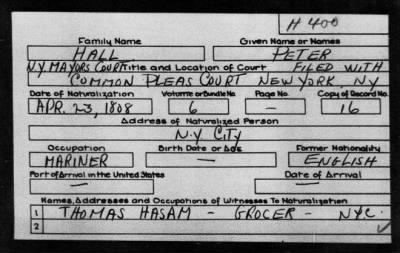 H 400
Family Name Given Name or Names
HALL PETER
N.Y. MAYORS COURT Title and Location of Court FILED WITH
COMMON PLEAS COURT NEW YORK, NY
Date of Naturalization Volume or Bundle No. Page No. Copy of Record No.
APR. 23, 1808 6 — 16
Address of Naturalized Person
N.Y. CITY
Occupation Birth Date or Age Former Nationality
MARINER — ENGLISH
Port of Arrival in the United States Date of Arrival
— —
Names, Addresses and Occupations of Witnesses To Naturalization
1 THOMAS HASAM - GROCER - NYC.
2